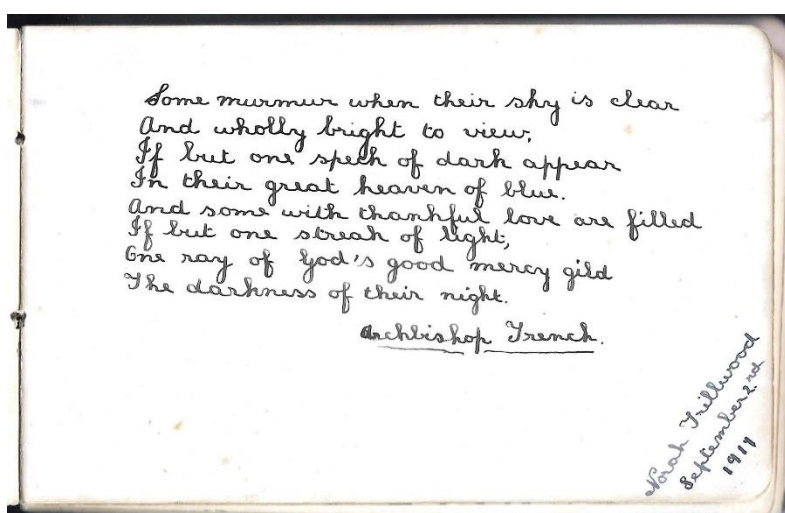 Some murmur when their sky is clear
And wholly bright to view,
If but one speck of dark appear
In their great heaven of blue.
And some with thankful love are filled
If but one streak of light,
One ray of God's good mercy gild
The darkness of their night.
Archbishop Trench.
Norah Trillwood
September 2.rd
1917